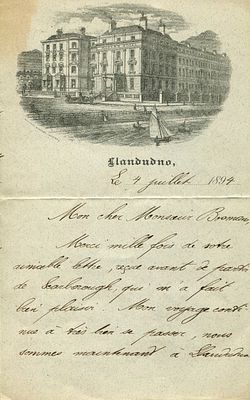 Llandudno,
Le 4 juillet 1894
Mon cher Monsieur
Merci mille fois de votre
aimable lettre, reçue avant de partir
de Scarborough, qui m'a fait
bien plaisir. Mon voyage conti-
nue à très bien se passer, nous
sommes maintenant à Llandudno